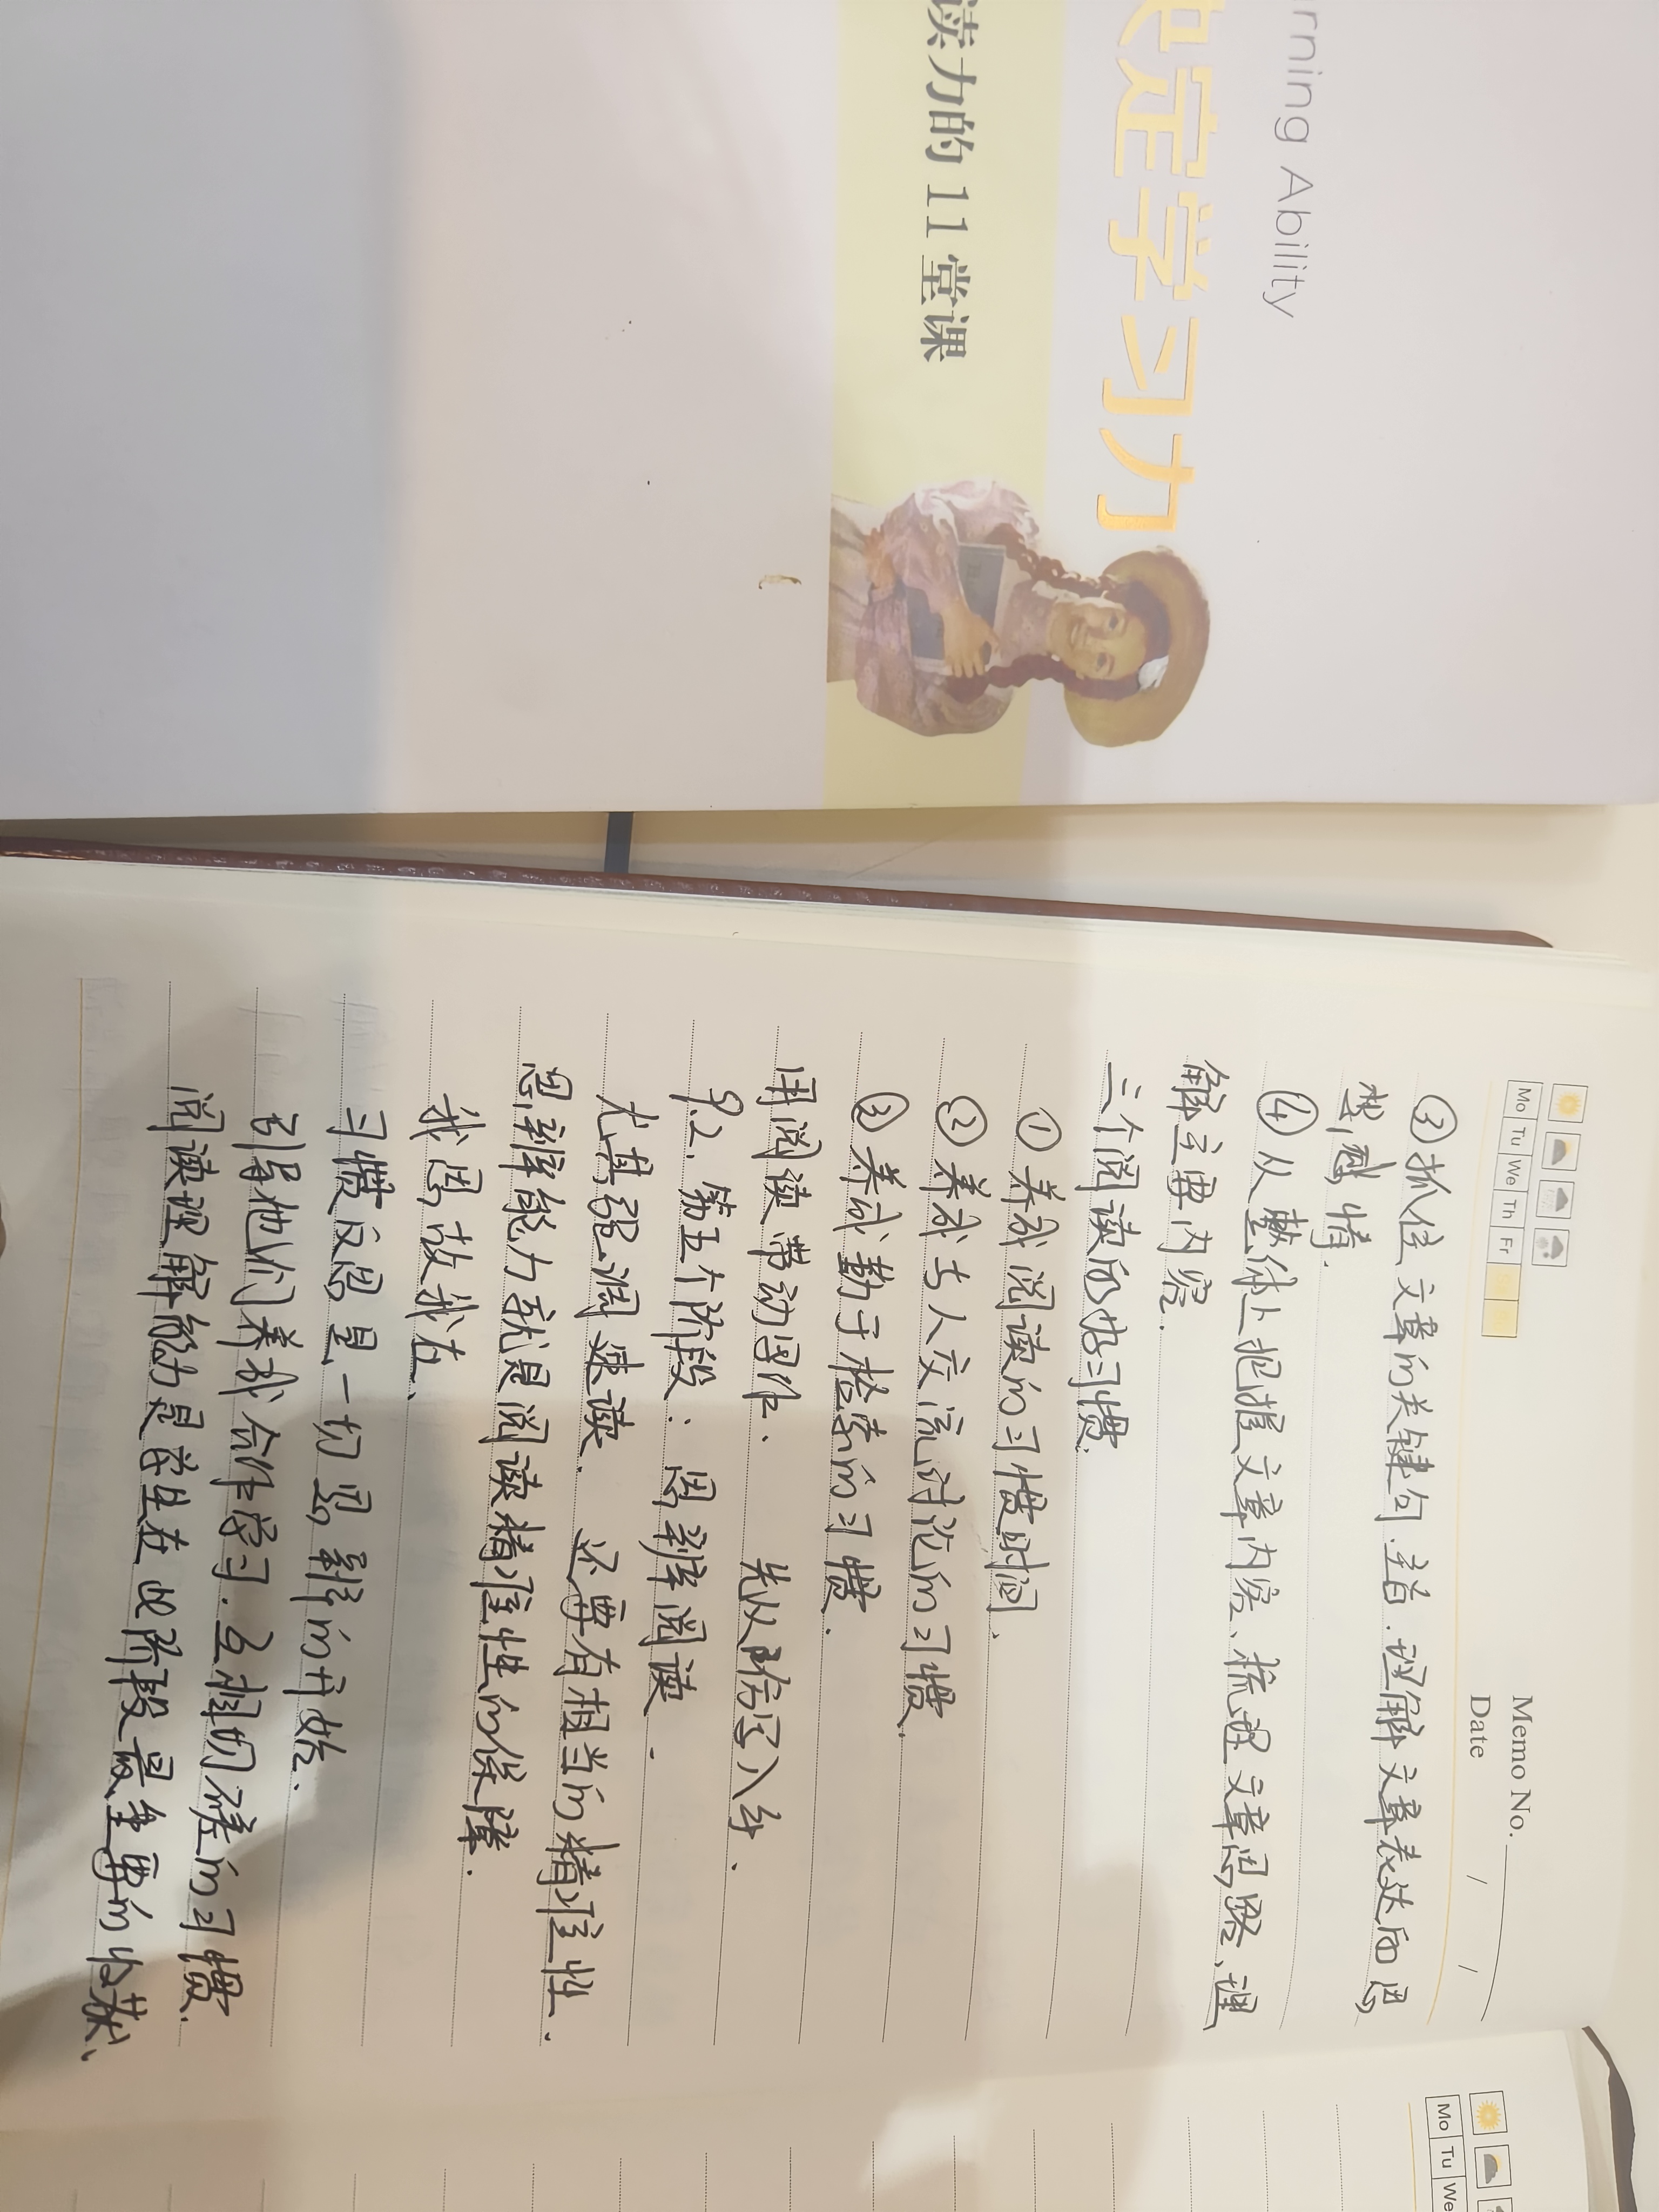 rning Ability
决定学习力
读力的 11 堂课
Memo No.
Mo Tu We Th Fr
Date / /
③抓住文章的关键句.主旨.理解文章表达的思
想感情.
④从整体上把握文章内容、梳理文章思路、理
解主要内容.
三个阅读的好习惯.
① 养成阅读的习惯时间.
② 养成与人交流讨论的习惯.
③ 养成勤于检索的习惯.
用阅读带动写作. 先从 入手.
9.2. 第五个阶段：思辨阅读.
尤其强调速读. 还要有相当的精准性.
思辨能力就是阅读精准性的保障.
我思故我在.
习惯反思是一切思辩的开始.
引导他们养成合作学习.互相切磋的习惯.
阅读理解能力是学生在此阶段最重要的收获、
Mo Tu We